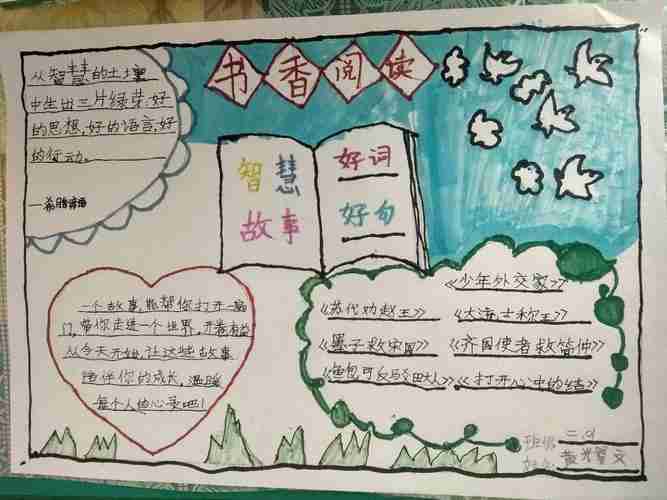 书香阅读
从智慧的土壤
中生出三片绿芽:好
的思想,好的语言,好
的行动。
——希腊谚语
智慧
故事
好词
好句
一个故事,能帮你打开一扇
门,带你走进一个世界,开卷有益
从今天开始,让这些故事
陪伴你的成长,温暖
每个人的心灵吧!
《少年外交家》
《苏代劝赵王》
《大海士称王》
《墨子救宋国》
《齐国使者救管仲》
《鱼包可反与奁田大人》
《打开心中的结》
班级
二.9
姓名